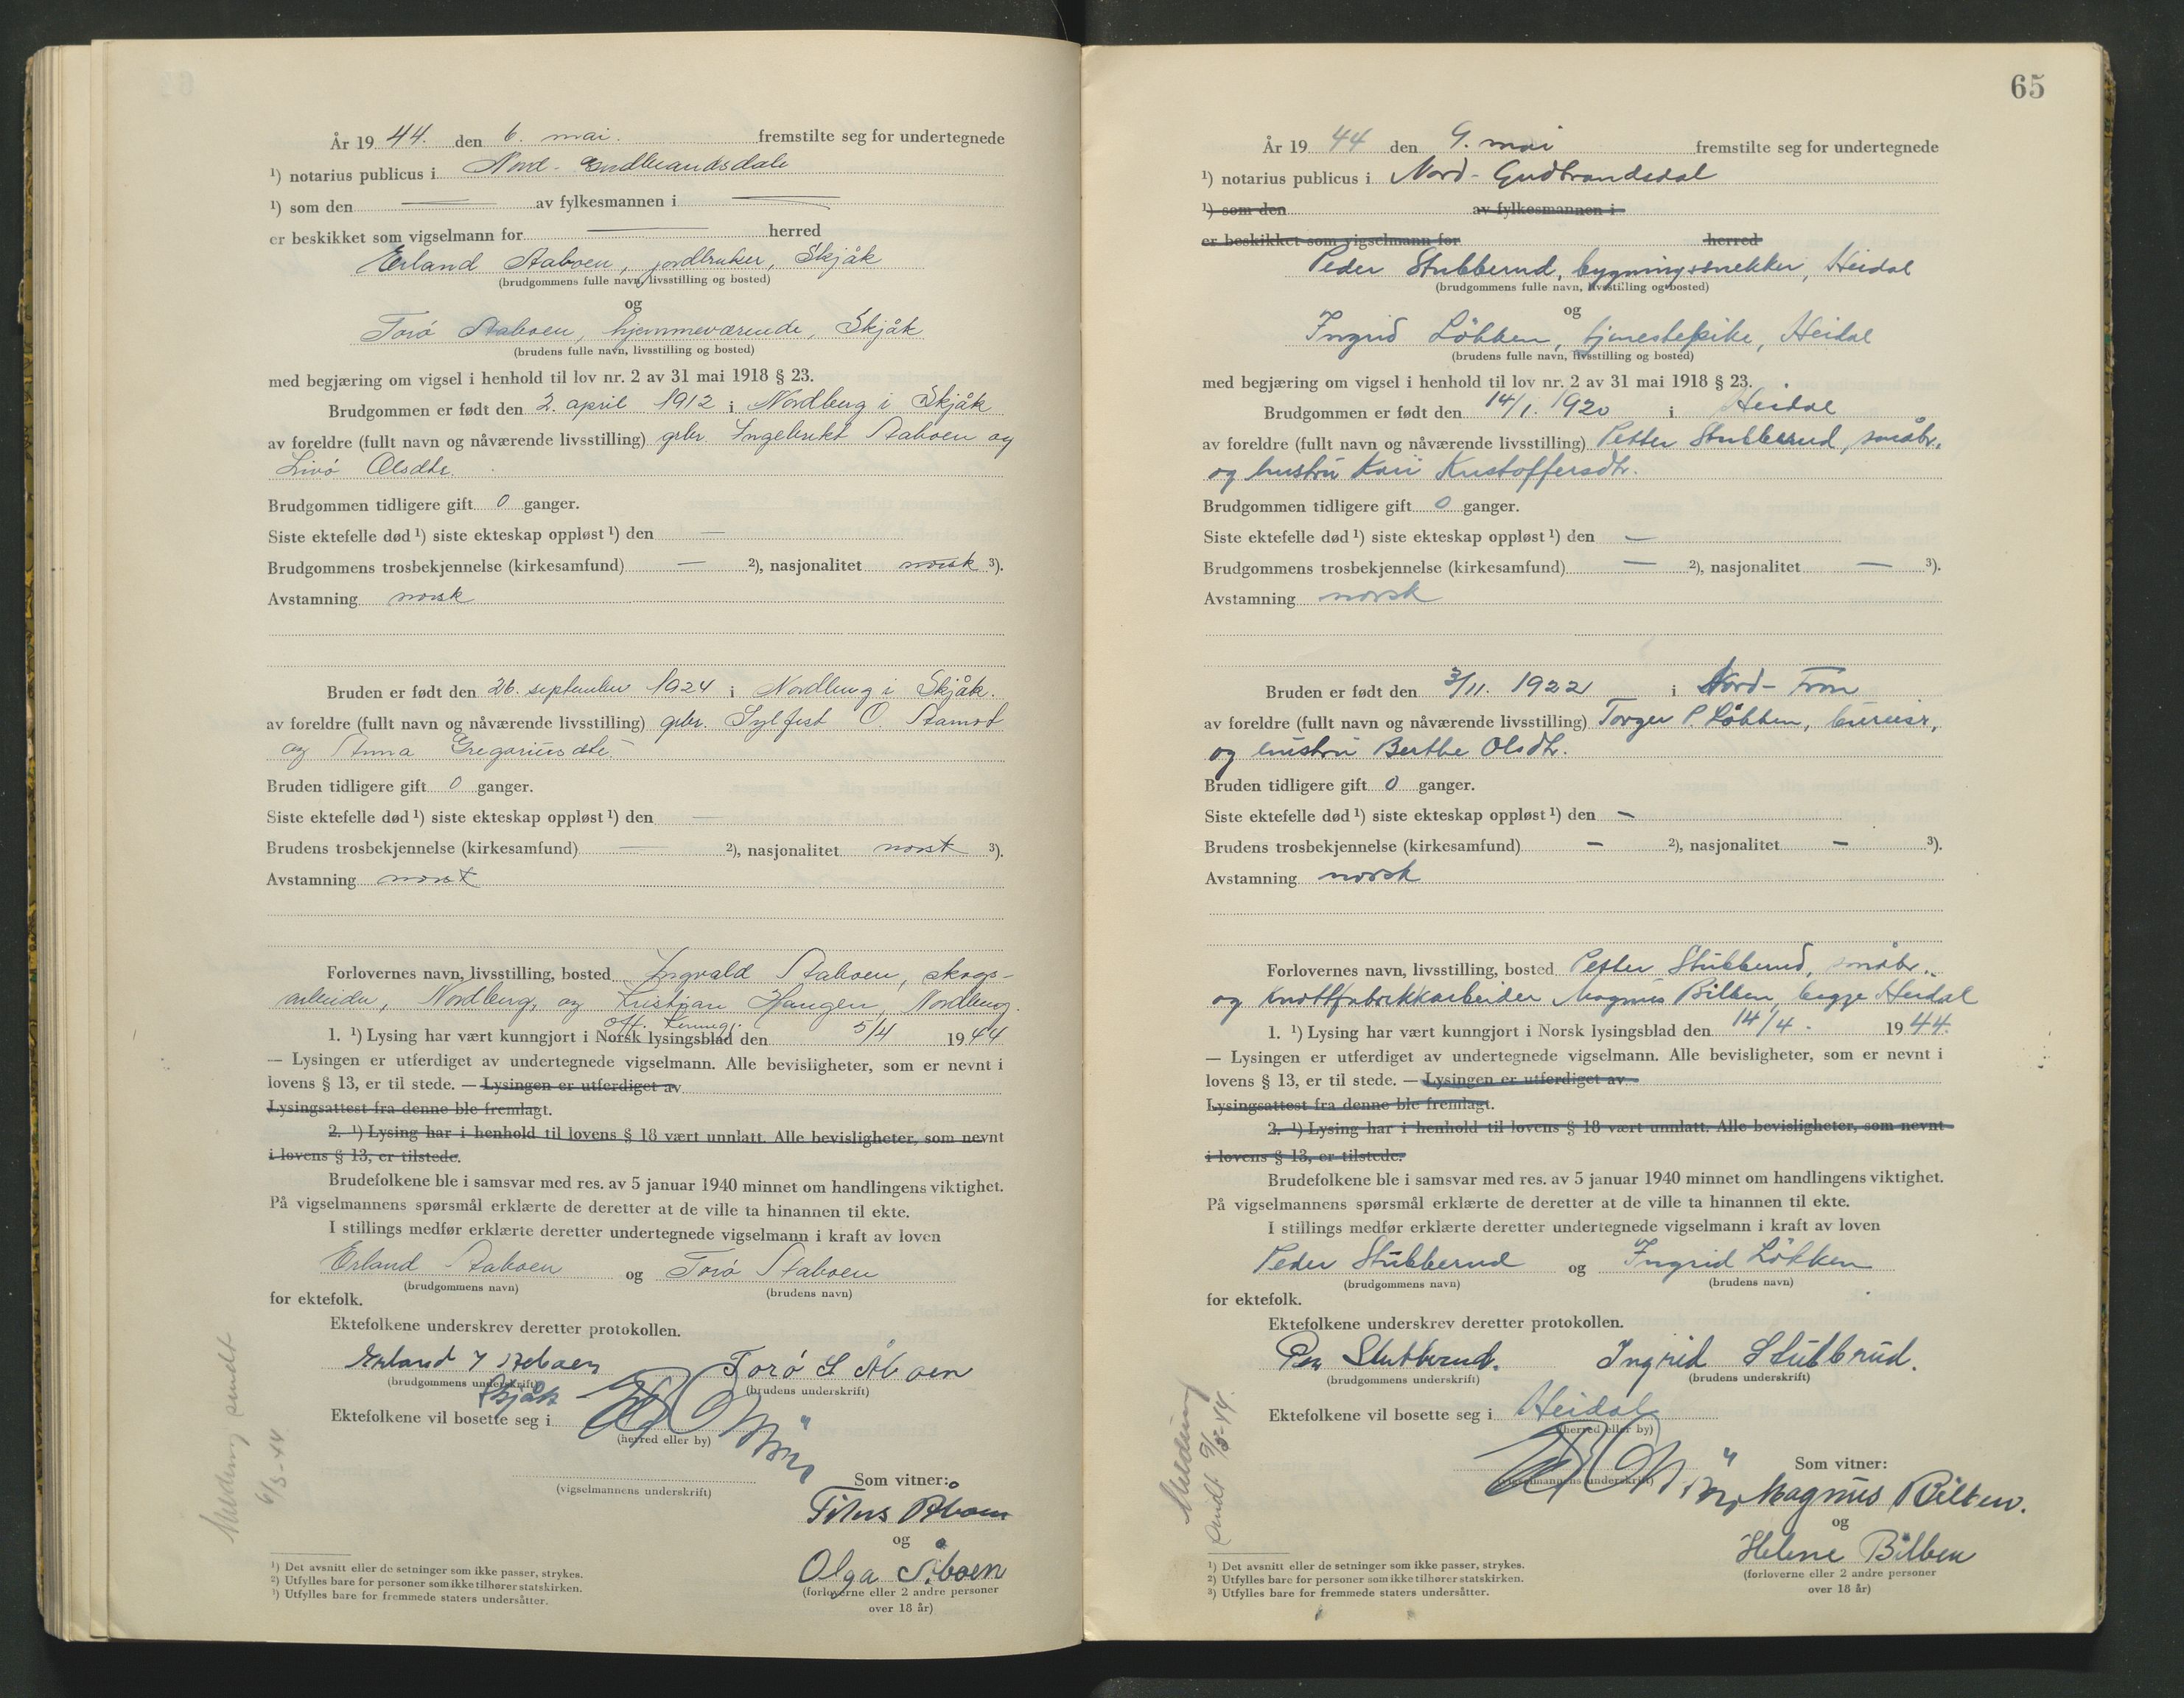 År 19 44. den 6. mai. fremstilte seg for undertegnede
¹) notarius publicus i Nord-Gudbrandsdalen
¹) som den — av fylkesmannen i —
er beskikket som vigselmann for — herred
Erland Aaboen, jordbruker, Skjåk
(brudgommens fulle navn, livsstilling og bosted)
og
Torø Aaboen, hjemmeværende, Skjåk
(brudens fulle navn, livsstilling og bosted)
med begjæring om vigsel i henhold til lov nr. 2 av 31 mai 1918 § 23.
Brudgommen er født den 2. april 1912 i Nordberg i Skjåk
av foreldre (fullt navn og nåværende livsstilling) grbr. Ingebrikt Aaboen og
Livø Olsdtr.
Brudgommen tidligere gift 0 ganger.
Siste ektefelle død ¹) siste ekteskap oppløst ¹) den —
Brudgommens trosbekjennelse (kirkesamfund) — ²), nasjonalitet norsk ³).
Avstamning norsk
Bruden er født den 26. september 1924 i Nordberg i Skjåk.
av foreldre (fullt navn og nåværende livsstilling) grbr. Sylfest O. Aamot
og Anna Gregoriusdtr.
Bruden tidligere gift 0 ganger.
Siste ektefelle død ¹) siste ekteskap oppløst ¹) den —
Brudens trosbekjennelse (kirkesamfund) — ²), nasjonalitet norsk ³).
Avstamning norsk
Forlovernes navn, livsstilling, bosted Ingvald Aaboen, skogs-
arbeider, Nordberg, og Kristian Haugen, Nordberg.
off. kunng.
1. ¹) Lysing har vært kunngjort i Norsk lysingsblad den 5/4 1944
— Lysingen er utferdiget av undertegnede vigselmann. Alle bevisligheter, som er nevnt i
lovens § 13, er til stede. — Lysingen er utferdiget av
Lysingsattest fra denne ble fremlagt.
2. ¹) Lysing har i henhold til lovens § 18 vært unnlatt. Alle bevisligheter, som nevnt
i lovens § 13, er tilstede.
Brudefolkene ble i samsvar med res. av 5 januar 1940 minnet om handlingens viktighet.
På vigselmannens spørsmål erklærte de deretter at de ville ta hinannen til ekte.
I stillings medfør erklærte deretter undertegnede vigselmann i kraft av loven
Erland Aaboen og Torø Aaboen
(brudgommens navn) (brudens navn)
for ektefolk.
Ektefolkene underskrev deretter protokollen.
Erland Aaboen Torø S Åboen
(brudgommens underskrift) (brudens underskrift)
Skjåk
Ektefolkene vil bosette seg i
(herred eller by)
Som vitner:
(vigselmannens underskrift)
Åboen
og
Olga Åboen
(forloverne eller 2 andre personer
over 18 år)
Melding sendt
6/5-44
¹) Det avsnitt eller de setninger som ikke passer, strykes.
²) Utfylles bare for personer som ikke tilhører statskirken.
¹) Utfylles bare for fremmede staters undersåtter.
65
År 19 44 den 9. mai fremstilte seg for undertegnede
¹) notarius publicus i Nord-Gudbrandsdal
¹) som den av fylkesmannen i
er beskikket som vigselmann for herred
Peder Stubberud, bygningssnekker, Heidal
(brudgommens fulle navn, livsstilling og bosted)
og
Ingrid Løkken, tjenestepike, Heidal
(brudens fulle navn, livsstilling og bosted)
med begjæring om vigsel i henhold til lov nr. 2 av 31 mai 1918 § 23.
Brudgommen er født den 14/1. 1920 i Heidal
av foreldre (fullt navn og nåværende livsstilling) Petter Stubberud, småbr.,
og hustru Kari Kristoffersdtr.
Brudgommen tidligere gift 0 ganger.
Siste ektefelle død ¹) siste ekteskap oppløst ¹) den —
Brudgommens trosbekjennelse (kirkesamfund) — ²), nasjonalitet — ³).
Avstamning norsk
Bruden er født den 3/11. 1922 i Nord-Fron
av foreldre (fullt navn og nåværende livsstilling) Torger P. Løkken, bureiser,
og hustru Berthe Olsdtr.
Bruden tidligere gift 0 ganger.
Siste ektefelle død ¹) siste ekteskap oppløst ¹) den —
Brudens trosbekjennelse (kirkesamfund) — ²), nasjonalitet — ³).
Avstamning norsk
Forlovernes navn, livsstilling, bosted Petter Stubberud, småbr.,
og knottfabrikkarbeider Magnus Bilben, begge Heidal
1. ¹) Lysing har vært kunngjort i Norsk lysingsblad den 14/4. 1944.
— Lysingen er utferdiget av undertegnede vigselmann. Alle bevisligheter, som er nevnt i
lovens § 13, er til stede. — Lysingen er utferdiget av
Lysingsattest fra denne ble fremlagt.
2. ¹) Lysing har i henhold til lovens § 18 vært unnlatt. Alle bevisligheter, som nevnt
i lovens § 13, er tilstede.
Brudefolkene ble i samsvar med res. av 5 januar 1940 minnet om handlingens viktighet.
På vigselmannens spørsmål erklærte de deretter at de ville ta hinannen til ekte.
I stillings medfør erklærte deretter undertegnede vigselmann i kraft av loven
Peder Stubberud og Ingrid Løkken
(brudgommens navn) (brudens navn)
for ektefolk.
Ektefolkene underskrev deretter protokollen.
Per Stubberud. Ingrid Stubbrud.
(brudgommens underskrift) (brudens underskrift)
Ektefolkene vil bosette seg i Heidal
(herred eller by)
Som vitner:
(vigselmannens underskrift)
Magnus Bilben.
og
Helene Bilben
(forloverne eller 2 andre personer
over 18 år)
Melding
sendt 9/5-44.
¹) Det avsnitt eller de setninger som ikke passer, strykes.
²) Utfylles bare for personer som ikke tilhører statskirken.
³) Utfylles bare for fremmede staters undersåtter.